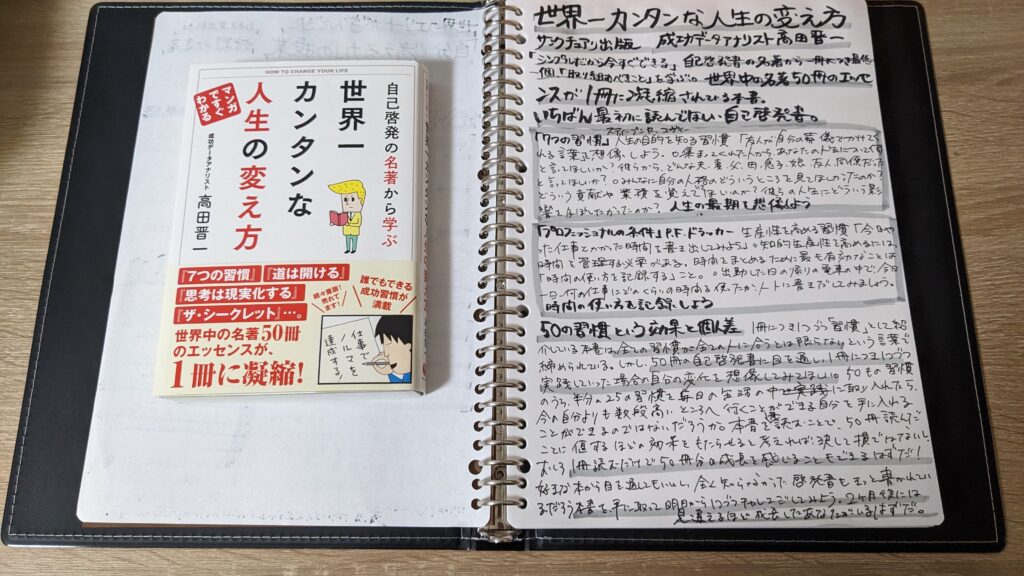 HOW TO CHANGE YOUR LIFE
自己啓発の名著から学ぶ
世界一
カンタンな
人生の変え方
マンガ
ですぐ
わかる
成功データアナリスト 高田晋一
『7つの習慣』『道は開ける』
『思考は現実化する』
『ザ・シークレット』…。
世界中の名著50冊
のエッセンスが、
1冊に凝縮!
誰でもできる
成功習慣が
満載
続々重版!
売れて
ます!
仕事で
ノルマを
達成する!
世界一カンタンな人生の変え方
サンクチュアリ出版 成功データアナリスト高田晋一
「シンプルだから今すぐできる」自己啓発書の名著から一冊につき最低
一個「取り組むべきこと」を学ぶ。世界中の名著50冊のエッセ
ンスが1冊に凝縮されている本書。
いちばん最初に読んでほしい自己啓発書。
スティーブン・R・コヴィー
「7つの習慣」人生の目的を知る習慣「友人が自分の葬儀でかけてく
れる言葉を想像しよう。
と言ってほしいか?彼らから、どんな夫、妻、父、母、息子、娘、友人、同僚だった
と言ってほしいか?
どういう貢献や業績を覚えてほしいのか?彼らの人生にどういう影
響を及ぼしたかったのか? 人生の最期を想像しよう
「プロフェッショナルの条件」P.F.ドラッカー 生産性を高める習慣「今日や
った仕事とかかった時間を書き出してみよう」知的生産性を高めるには、
時間を管理する必要がある。時間をまとめるために最も有効なことは
「時間の使い方を記録すること」。出勤した日の帰りの電車の中で、今日
一日、何の仕事にどのくらいの時間を使ったか、メモに書き出してみましょう。
時間の使い方を記録しよう
50の習慣という効果と個人差 1冊につき1つずつ「習慣」として紹
介している本書は、全ての習慣が全ての人に合うとは限らないという言葉で
締められている。しかし、50冊の自己啓発書に目を通し、1冊につき1つずつ
実践していった場合の自分の変化を想像してみてほしい。50もの習慣
のうち、半分の25の習慣を毎日の生活の中で実践に取り入れたら、
今の自分よりも数段高いところへ行くことができる自分を手に入れる
ことができるのではないだろうか?本書を読むことで、50冊読んだ
ことに値するほどの効果をもたらせると考えれば決して損ではないし、
むしろ1冊読むだけで50冊分の成長を感じることもできるはずだ!
好きな本から目を通してもいいし、全く知らなかった啓発書もきっと書かれてい
るだろう本書を手に取って明日から1つずつチャレンジしてみよう。2ヶ月後には
見違えるほど成長したあなたがいるはずだ。